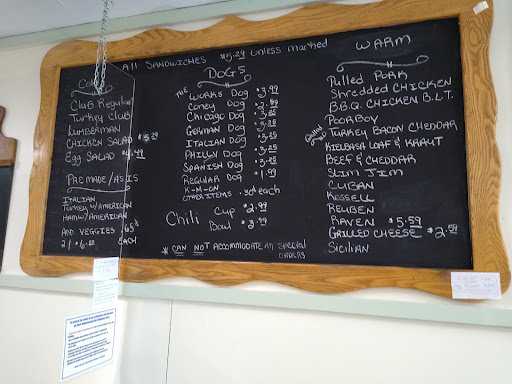 All SANDWICHES $5.29 unless marked
Club Regular
Turkey Club
LUMBERMAN
CHICKEN SALAD $5.29
Egg SALAD $4.49
PREMADE/AS IS
ITALIAN
Turkey w/AMERICAN
Ham w/AMERICAN
AND VEGGIES
EACH
DOGS
THE WORKS Dog
Coney Dog
Chicago Dog
GERMAN Dog
ITALIAN Dog
PHILLY Dog
SPANISH Dog
REGULAR Dog $1.99
K-M-ON
OTHER ITEMS .30¢ each
Chili Cup $2.99
Bowl $3.99
* CAN NOT ACCOMMODATE AN Special
ORDERS
WARM
Pulled PORK
Shredded CHICKEN
B.B.Q. CHICKEN B.L.T.
POORBOY
Grilled TURKEY BACON CHEDDAR
KIELBASA LOAF & KRAUT
BEEF & CHEDDAR
SLIM JIM
CUBAN
RUSSELL
REUBEN
RAVEN $5.59
GRILLED CHEESE $2.59
Sicilian